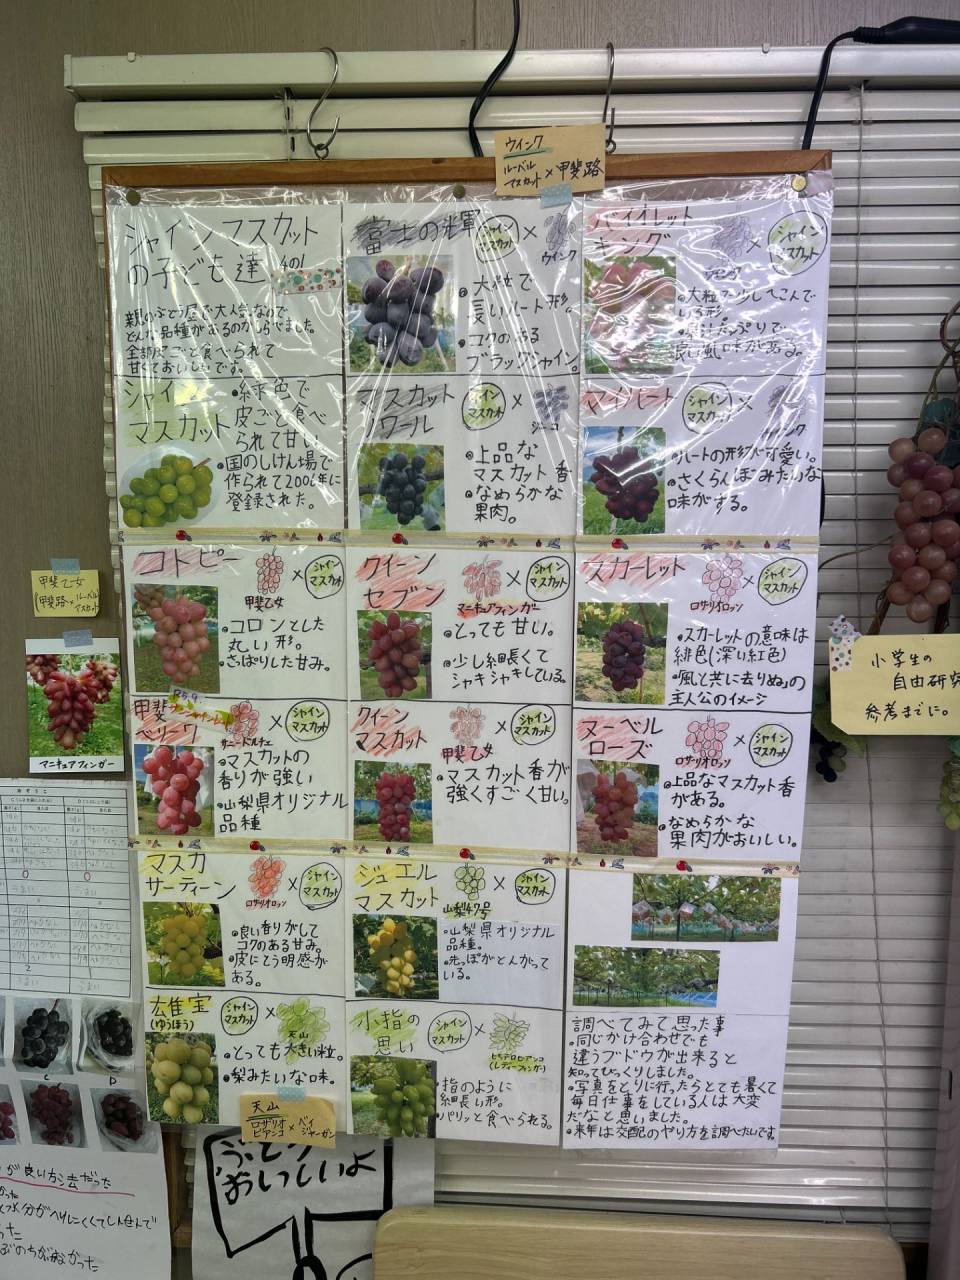 ウインク
ルーベル
マスカット × 甲斐路
シャインマスカット
の子ども達 その1
親のぶどう屋で大人気なので
どんな品種があるのかしらべました。
全部皮ごと食べられて
甘くておいしいです。
富士の輝
シャイン
マスカット
×
ウインク
・大粒で
長いハート形。
・コクのある
ブラックシャイン。
バイオレット
キング
ウインク
×
シャイン
マスカット
・大粒で少しへこんで
いる形。
・果汁たっぷりで
濃い風味がある。
シャイン
マスカット
・緑色で
皮ごと食べ
られて甘い
・国のしけん場で
作られて2006年に
登録された。
マスカット
ノワール
シャイン
マスカット
×
・上品な
マスカット香
・なめらかな
果肉。
マイハート
シャイン
マスカット
×
ウインク
・ハートの形が可愛い。
・さくらんぼみたいな
味がする。
コトピー
×
シャイン
マスカット
甲斐乙女
・コロンとした
丸い形。
・さっぱりした甘み。
クイーン
セブン
×
シャイン
マスカット
マニキュアフィンガー
・とっても甘い。
・少し細長くて
シャキシャキしている。
スカーレット
×
シャイン
マスカット
ロザリオロッソ
・スカーレットの意味は
緋色(深い紅色)
・「風と共に去りぬ」の
主人公のイメージ
甲斐
ベリー7
×
シャイン
マスカット
サニードルチェ
・マスカットの
香りが強い
・山梨県オリジナル
品種
クイーン
マスカット
×
シャイン
マスカット
甲斐乙女
・マスカット香が
強くすごく甘い。
ヌーベル
ローズ
×
シャイン
マスカット
ロザリオロッソ
・上品なマスカット香
がある。
・なめらかな
果肉がおいしい。
マスカ
サーティーン
×
シャイン
マスカット
ロザリオロッソ
・良い香りがして
コクのある甘み。
・皮にとう明感が
ある。
ジュエル
マスカット
×
シャイン
マスカット
山梨47号
・山梨県オリジナル
品種。
・先っぽがとんがって
いる。
雄宝
(ゆうほう)
シャイン
マスカット
×
天山
・とっても大きい粒。
・梨みたいな味。
小指の
思い
シャイン
マスカット
×
ピッテロビアンコ
(レディーフィンガー)
・指のように
細長い形。
・パリッと食べられる。
調べてみて思った事
・同じかけ合わせでも
違うブドウが出来ると
知ってびっくりしました。
・写真をとりに行ったらとても暑くて
毎日仕事をしている人は大変
だなと思いました。
・来年は交配のやり方を調べたいです。
天山
ロザリオ
ビアンコ × ベイ
ジャーガン
甲斐乙女
(甲斐路×ルーベル
マスカット
マニキュアフィンガー
小学生の
自由研究
参考までに。
C
D
が良い方法だった
水分がへりにくくてしんせんで
ぶどう
おいしいよ